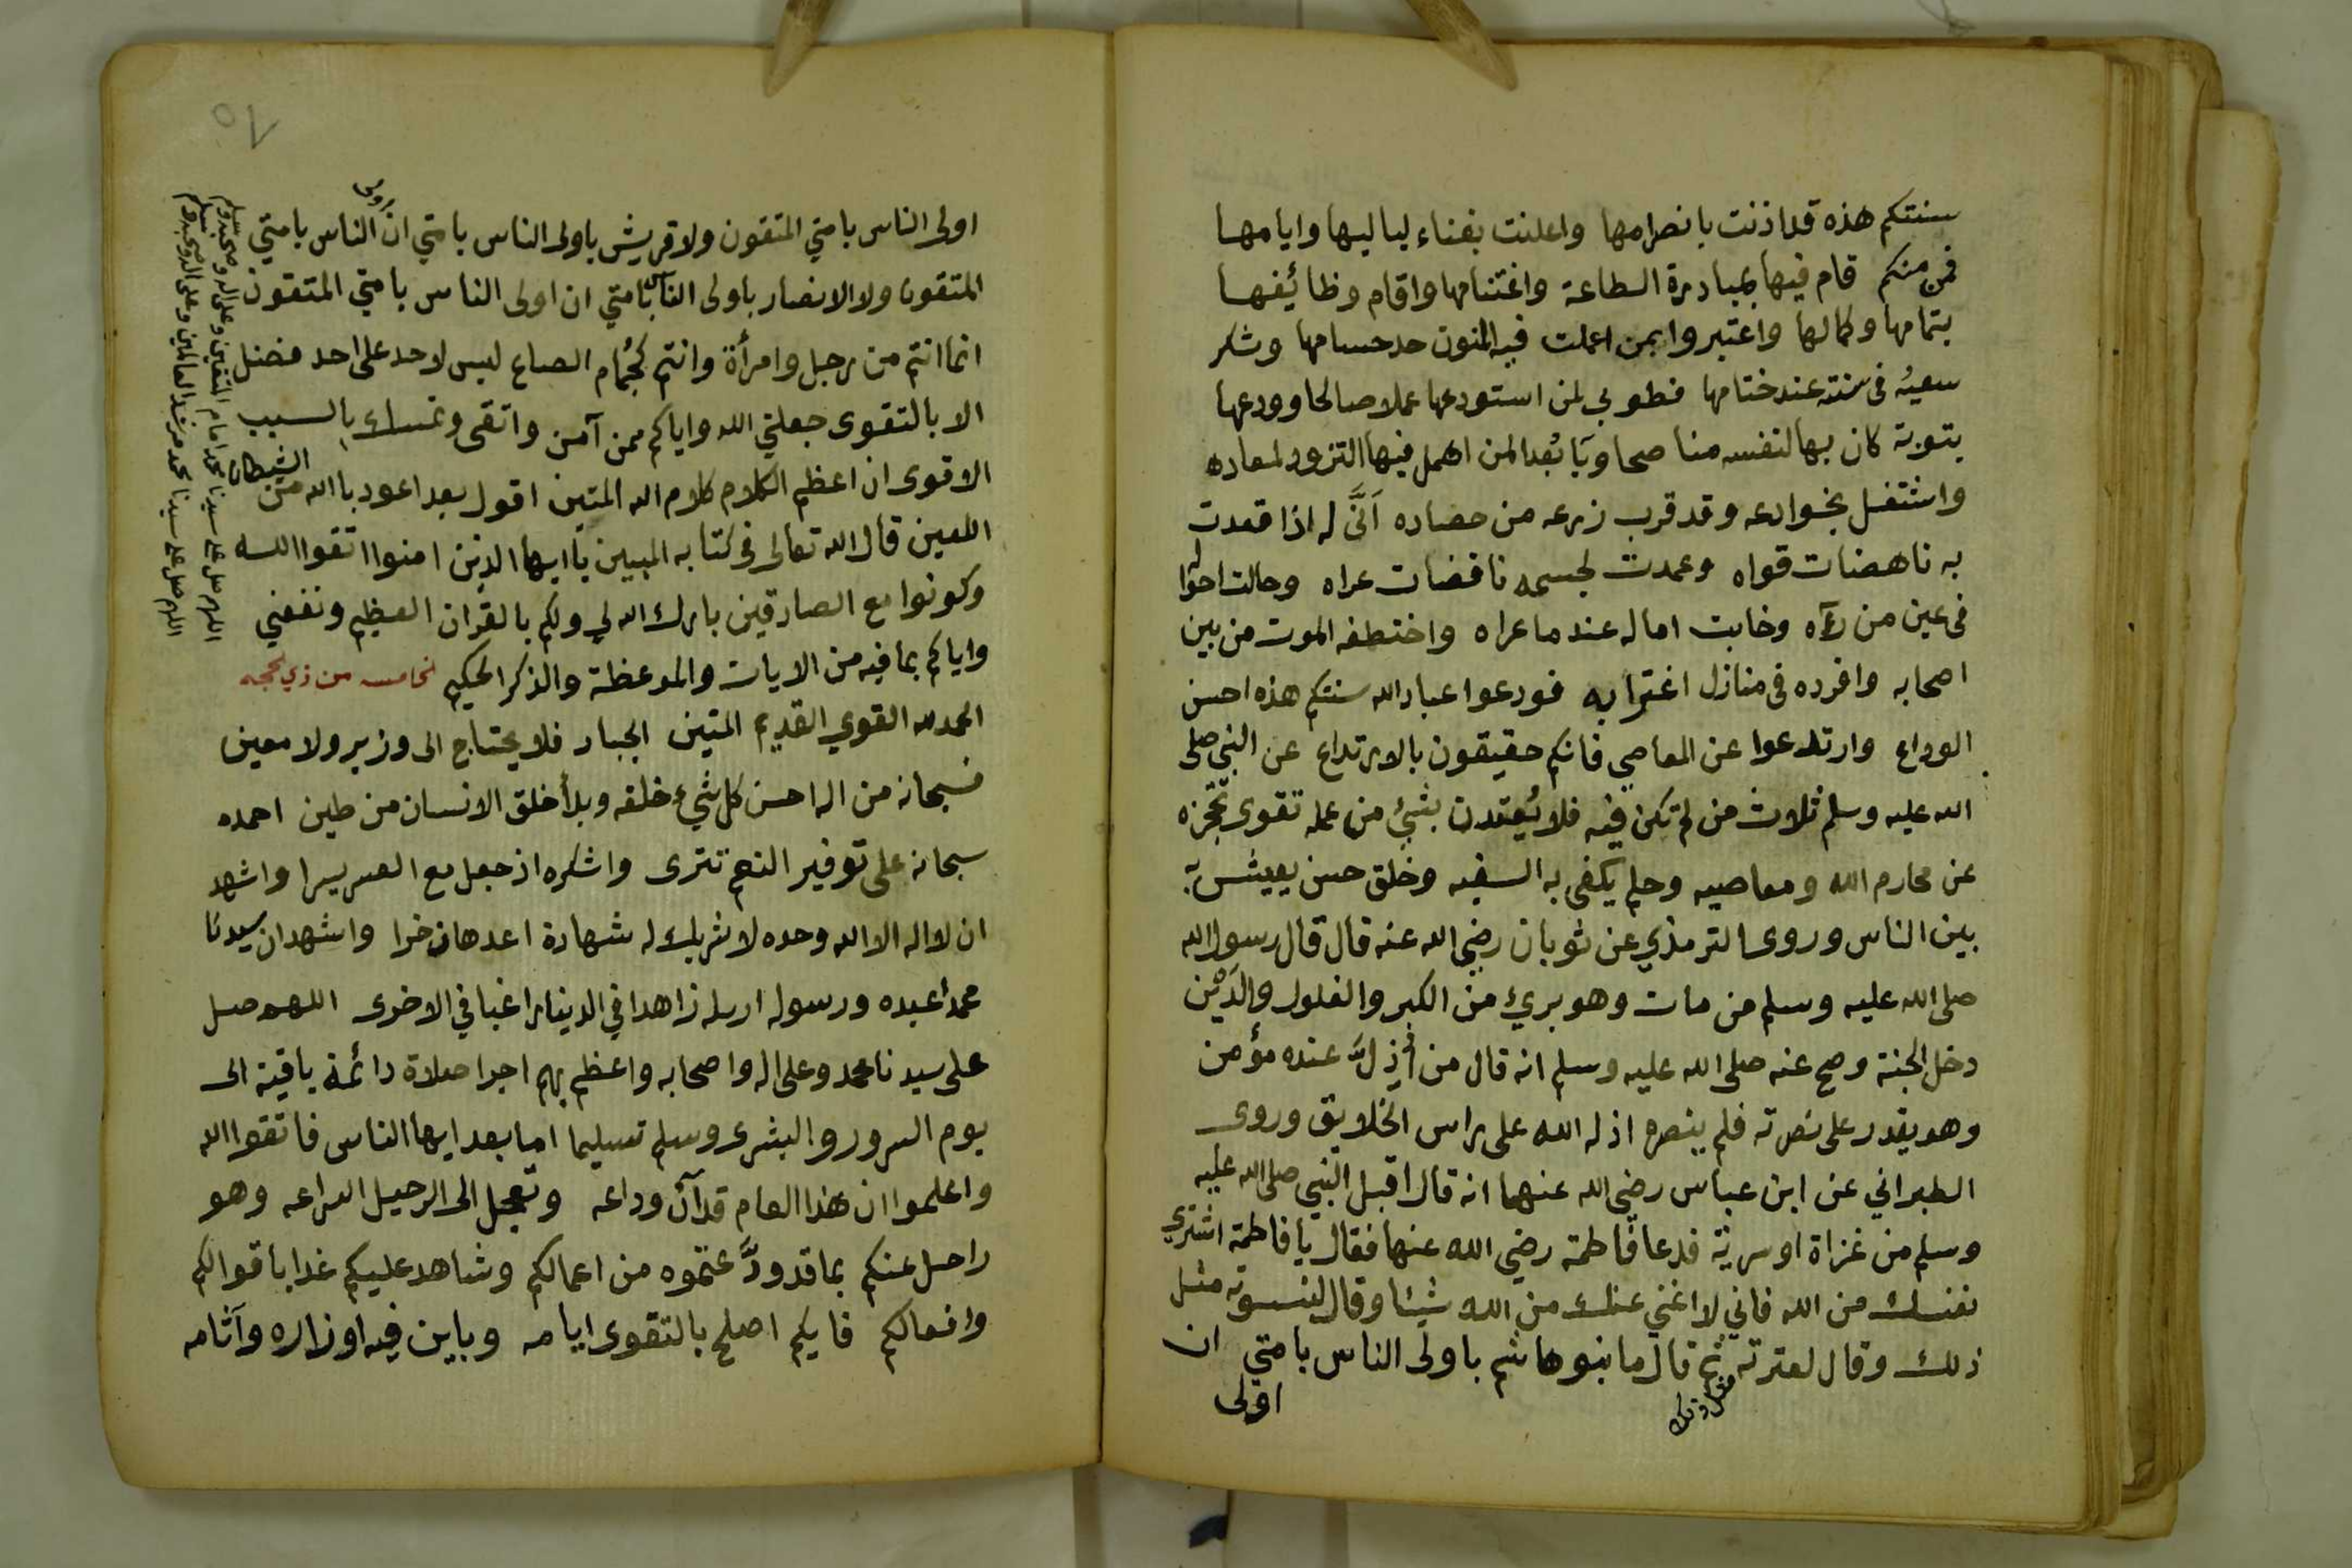 سنتكم هذه قد اذنت بانصرامها واعلنت بفناء لياليها وايامها
فمن منكم قام فيها بمبادرة الطاعة واغتنامها واقام وظائيفها
بتمامها وكمالها واعتبروا بمن اعملت فيه المنون حد حسامها وشكر
سعيه فى سنته عند ختامها فطوبي لمن استودعها عملا صالحا وودعها
بتوبة كان بها لنفسه مناصحا ويا بُعدا لمن اهمل فيها التزود لمعاده
واشتغل بخوادعه وقد قرب زرعه من حصاده اَنَّى له اذا قعدت
به ناهضات قواه وعمدت لجسمه ناقضات عراه وحالت احواله
فى عين من رءاه وخابت اماله عند ما عراه واختطفه الموت من بين
اصحابه وافرده فى منازل اغترابه فودعوا عباد الله سنتكم هذه احسن
الوداع وارتدعوا عن المعاصي فانكم حقيقون بالارتداع عن النبي صلى
الله عليه وسلم ثلاث من لم تكن فيه فلا يُعتدن بشئ من عمله تقوى تحجزه
عن محارم الله ومعاصيه وحلم يكفى به السفيه وخلق حسن يعيش به
بين الناس وروى الترمذي عن ثوبان رضي الله عنه قال قال رسول الله
صلى الله عليه وسلم من مات وهو بريئ من الكبر والغلول والدَيْن
دخل الجنة وصح عنه صلى الله عليه وسلم انه قال من أُذِلَّ عنده مؤمن
وهو يقدر على نصرته فلم ينصره اذله الله على راس الخلايق وروى
الطبراني عن ابن عباس رضي الله عنهما انه قال اقبل النبي صلى الله عليه
وسلم من غزاة او سرية فدعا فاطمة رضي الله عنها فقال يا فاطمة اشتري
نفسك من الله فاني لا اغني عنك من الله شيئا وقال لنسوته مثل
ذلك وقال لعترته ثم قال ما بنو هاشم باولى الناس بامتي ان
مثل ذلك
اولى
اولى الناس بامتي المتقون ولا قريش باولى الناس بامتي ان الناس بامتي
اولى
المتقون ولا الانصار باولى الناس بامتي ان اولى الناس بامتي المتقون
انما انتم من رجل وامرأة وانتم كجُمام الصاع ليس لاحد على احد فضل
الا بالتقوى جعلني الله واياكم ممن آمن واتقى وتمسك بالسبب
الاقوى ان اعظم الكلام كلام الله المتين اقول بعد اعوذ باالله من الشيطان
اللعين قال الله تعالى فى كتابه المبين يا ايها الذين امنوا اتقوا الله
وكونوا مع الصادقين بارك الله لي ولكم بالقران العظيم ونفعني
واياكم بما فيه من الايات والموعظة والذكر الحكيم لخامسه من ذي لحجه
الحمد لله القوي القديم المتين الجبار فلا يحتاج الى وزير ولا معين
فسبحانه من اله احسن كل شيء خلقه وبدأ خلق الانسان من طين احمده
سبحانه على توفير النعم تترى واشكره اذ جعل مع العسر يسرا واشهد
ان لا اله الا الله وحده لا شريك له شهادة اعدها ذخرا واشهد ان سيدنا
محمدا عبده ورسوله ارسله زاهدا في الدينا راغبا في الاخرى اللهم صل
على سيدنا محمد وعلى اله واصحابه واعظم بهم اجرا صلاة دائمة باقية الى
يوم السرور والبشرى وسلم تسليما اما بعد ايها الناس فاتقوا الله
واعلموا ان هذا العام قد آن وداعه وتعجل الى الرحيل اسراعه وهو
راحل عنكم بما قد ودَّعتموه من اعمالكم وشاهد عليكم غدا باقوالكم
وافعالكم فايكم اصلح بالتقوى ايامه وباين فيه اوزاره وآثامه
اللهم صل على سيدنا محمد امام المتقين وعلى اله وصحبه وسلم
اللهم صل على سيدنا محمد مرشد العالمين وعلى اله وصحبه وسلم